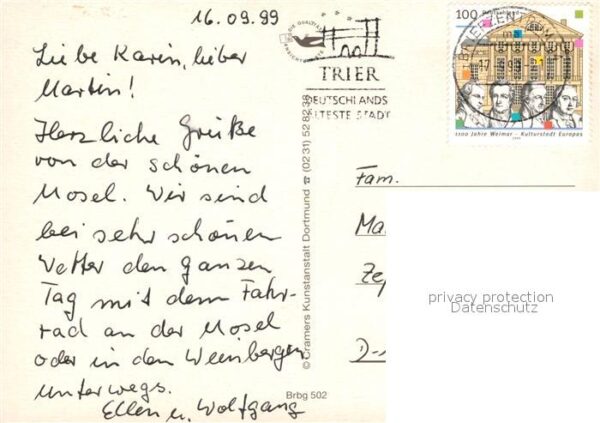 16.09.99
Liebe Karin, lieber
Martin!
Herzliche Grüße
von der schönen
Mosel. Wir sind
bei sehr schönen
Wetter den ganzen
Tag mit dem Fahr-
rad an der Mosel
oder in den Weinbergen
unterwegs.
Ellen u. Wolfgang
TRIER
DEUTSCHLANDS
ÄLTESTE STADT
© Cramers Kunstanstalt Dortmund ☎ (02 31) 52 82 36
Brbg 502
100 Deutschland
1100 Jahre Weimar – Kulturstadt Europas
Fam.
Ma
Zep
D-
privacy protection
Datenschutz